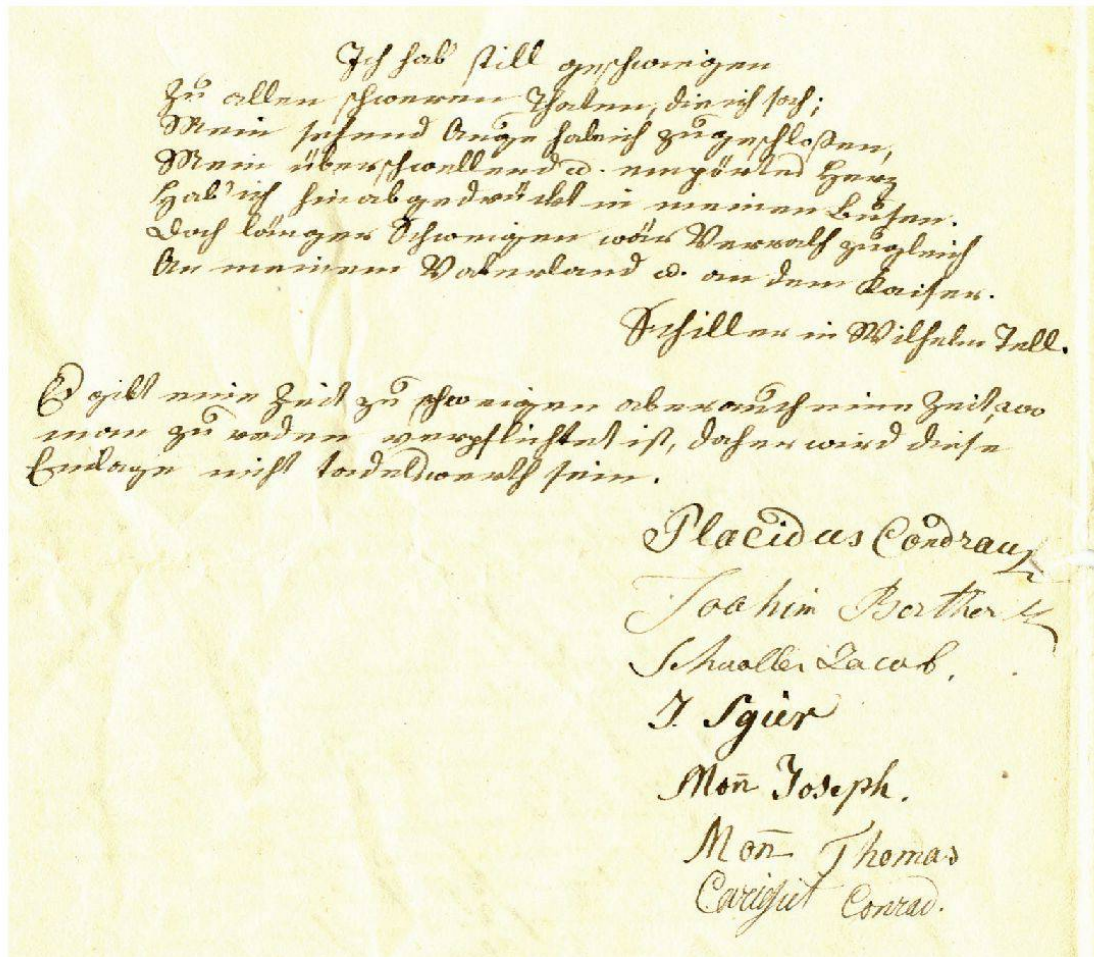 Ich hab' still geschwiegen
Zu allen schweren Thaten, die ich sah;
Mein sehend Auge hab ich zugeschloßen,
Mein überschwellend u. empörtes Herz
Hab' ich hinabgedrückt in meinen Busen.
Doch länger Schweigen wär Verrath zugleich
An meinem Vaterland u. an dem Kaiser.
Schiller in Wilhelm Tell.
Es gibt eine Zeit zu schweigen aber auch eine Zeit, wo
man zu reden verpflichtet ist, daher wird diese
nicht tadelswerth sein.
Placidus Condrau
Joachim Berther
Jacob.
J. Sgier
Mon̄ Joseph.
Mon̄ Thomas
Carigiet Conrad.